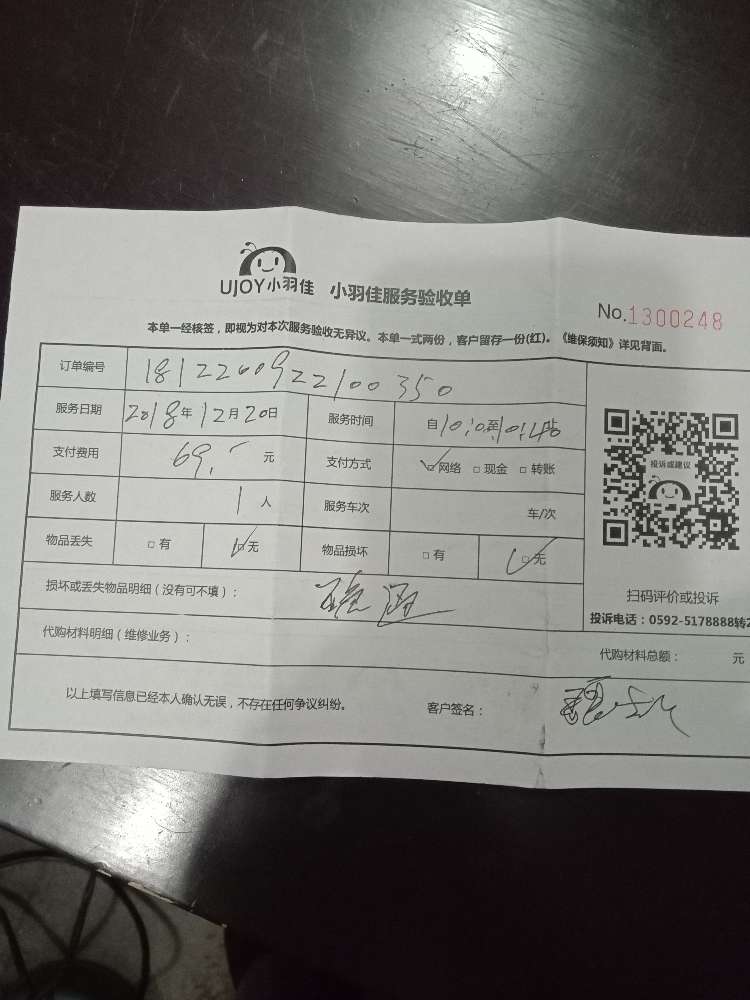 UJOY小羽佳 小羽佳服务验收单
No.1300248
本单一经核签，即视为对本次服务验收无异议。本单一式两份，客户留存一份(红)。《维保须知》详见背面。
订单编号 1812200922100350
服务日期 2018年12月20日 服务时间 自10:10至10:40
支付费用 69.- 元 支付方式 □网络 □现金 □转账
服务人数 1人 服务车次 车/次
物品丢失 □有 □无 物品损坏 □有 □无
投诉或建议
扫码评价或投诉
投诉电话：0592-5178888转2
损坏或丢失物品明细（没有可不填）：
代购材料明细（维修业务）： 代购材料总额： 元
以上填写信息已经本人确认无误，不存在任何争议纠纷。 客户签名：